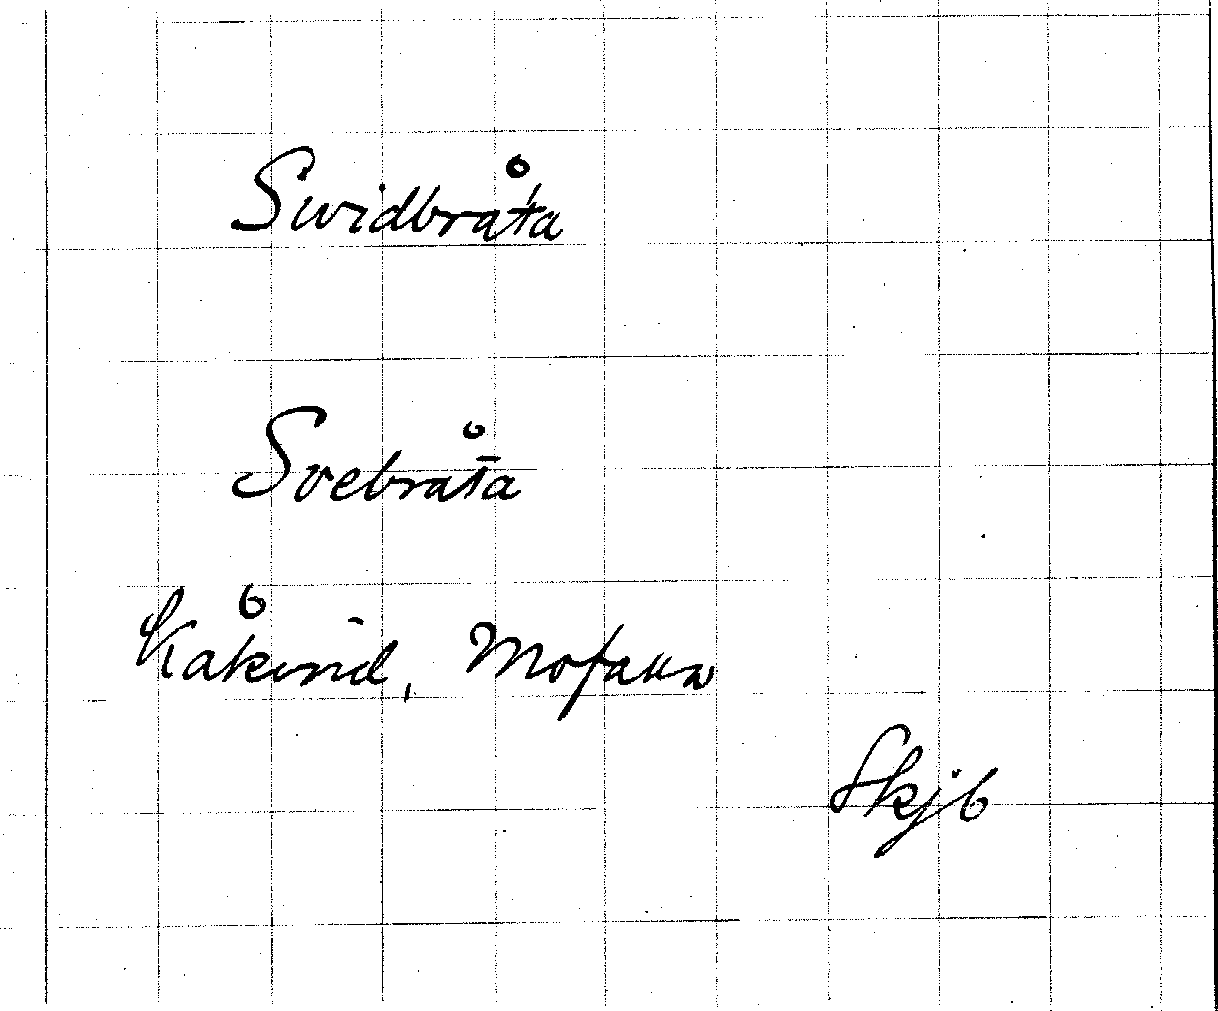 Swidbråta
Svebråta
Kåkind, Mofauna
Skjb